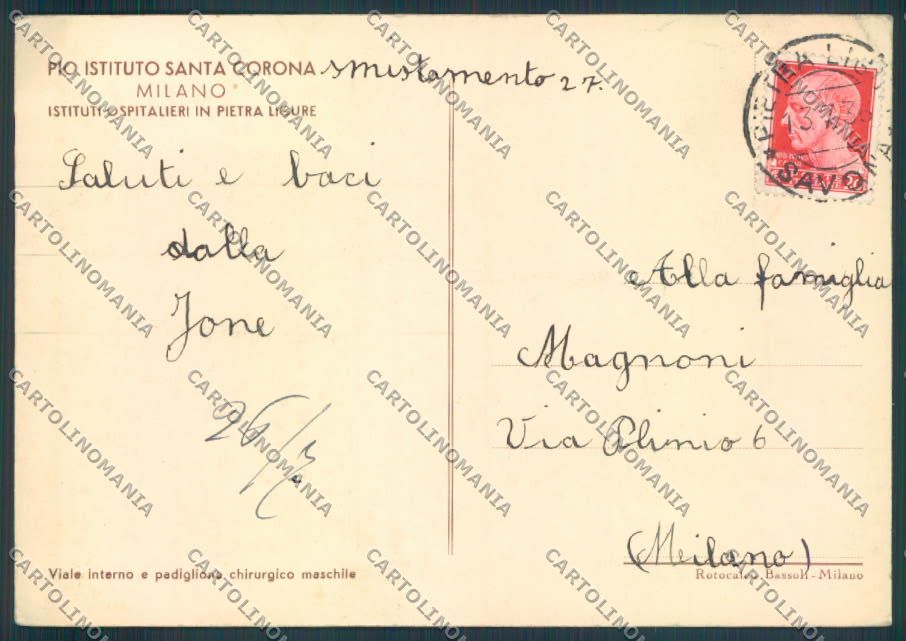 PIO ISTITUTO SANTA CORONA
MILANO
ISTITUTI OSPITALIERI IN PIETRA LIGURE
smistamento 27.
Saluti e baci
dalla
Jone
26/7.
Viale interno e padiglione chirurgico maschile
PIETRA LIGURE
SAVONA
Alla famiglia
Magnoni
Via Plinio 6
(Milano)
Rotocalco Bassoli - Milano
CARTOLINOMANIA